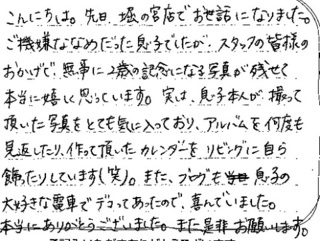 こんにちは。先日、堀の宮店でお世話になりました。
ご機嫌ななめだった息子でしたが、スタッフの皆様の
おかげで、無事に2歳の記念になる写真が残せて
本当に嬉しく思っています。実は、息子本人が、撮って
頂いた写真をとても気に入っており、アルバムを何度も
見返したり、作って頂いたカレンダーをリビングに自ら
飾ったりしています(笑)。また、ブーケも息子の
大好きな電車でデコってあったので、喜んでいました。
本当にありがとうございました。また是非お願いします。